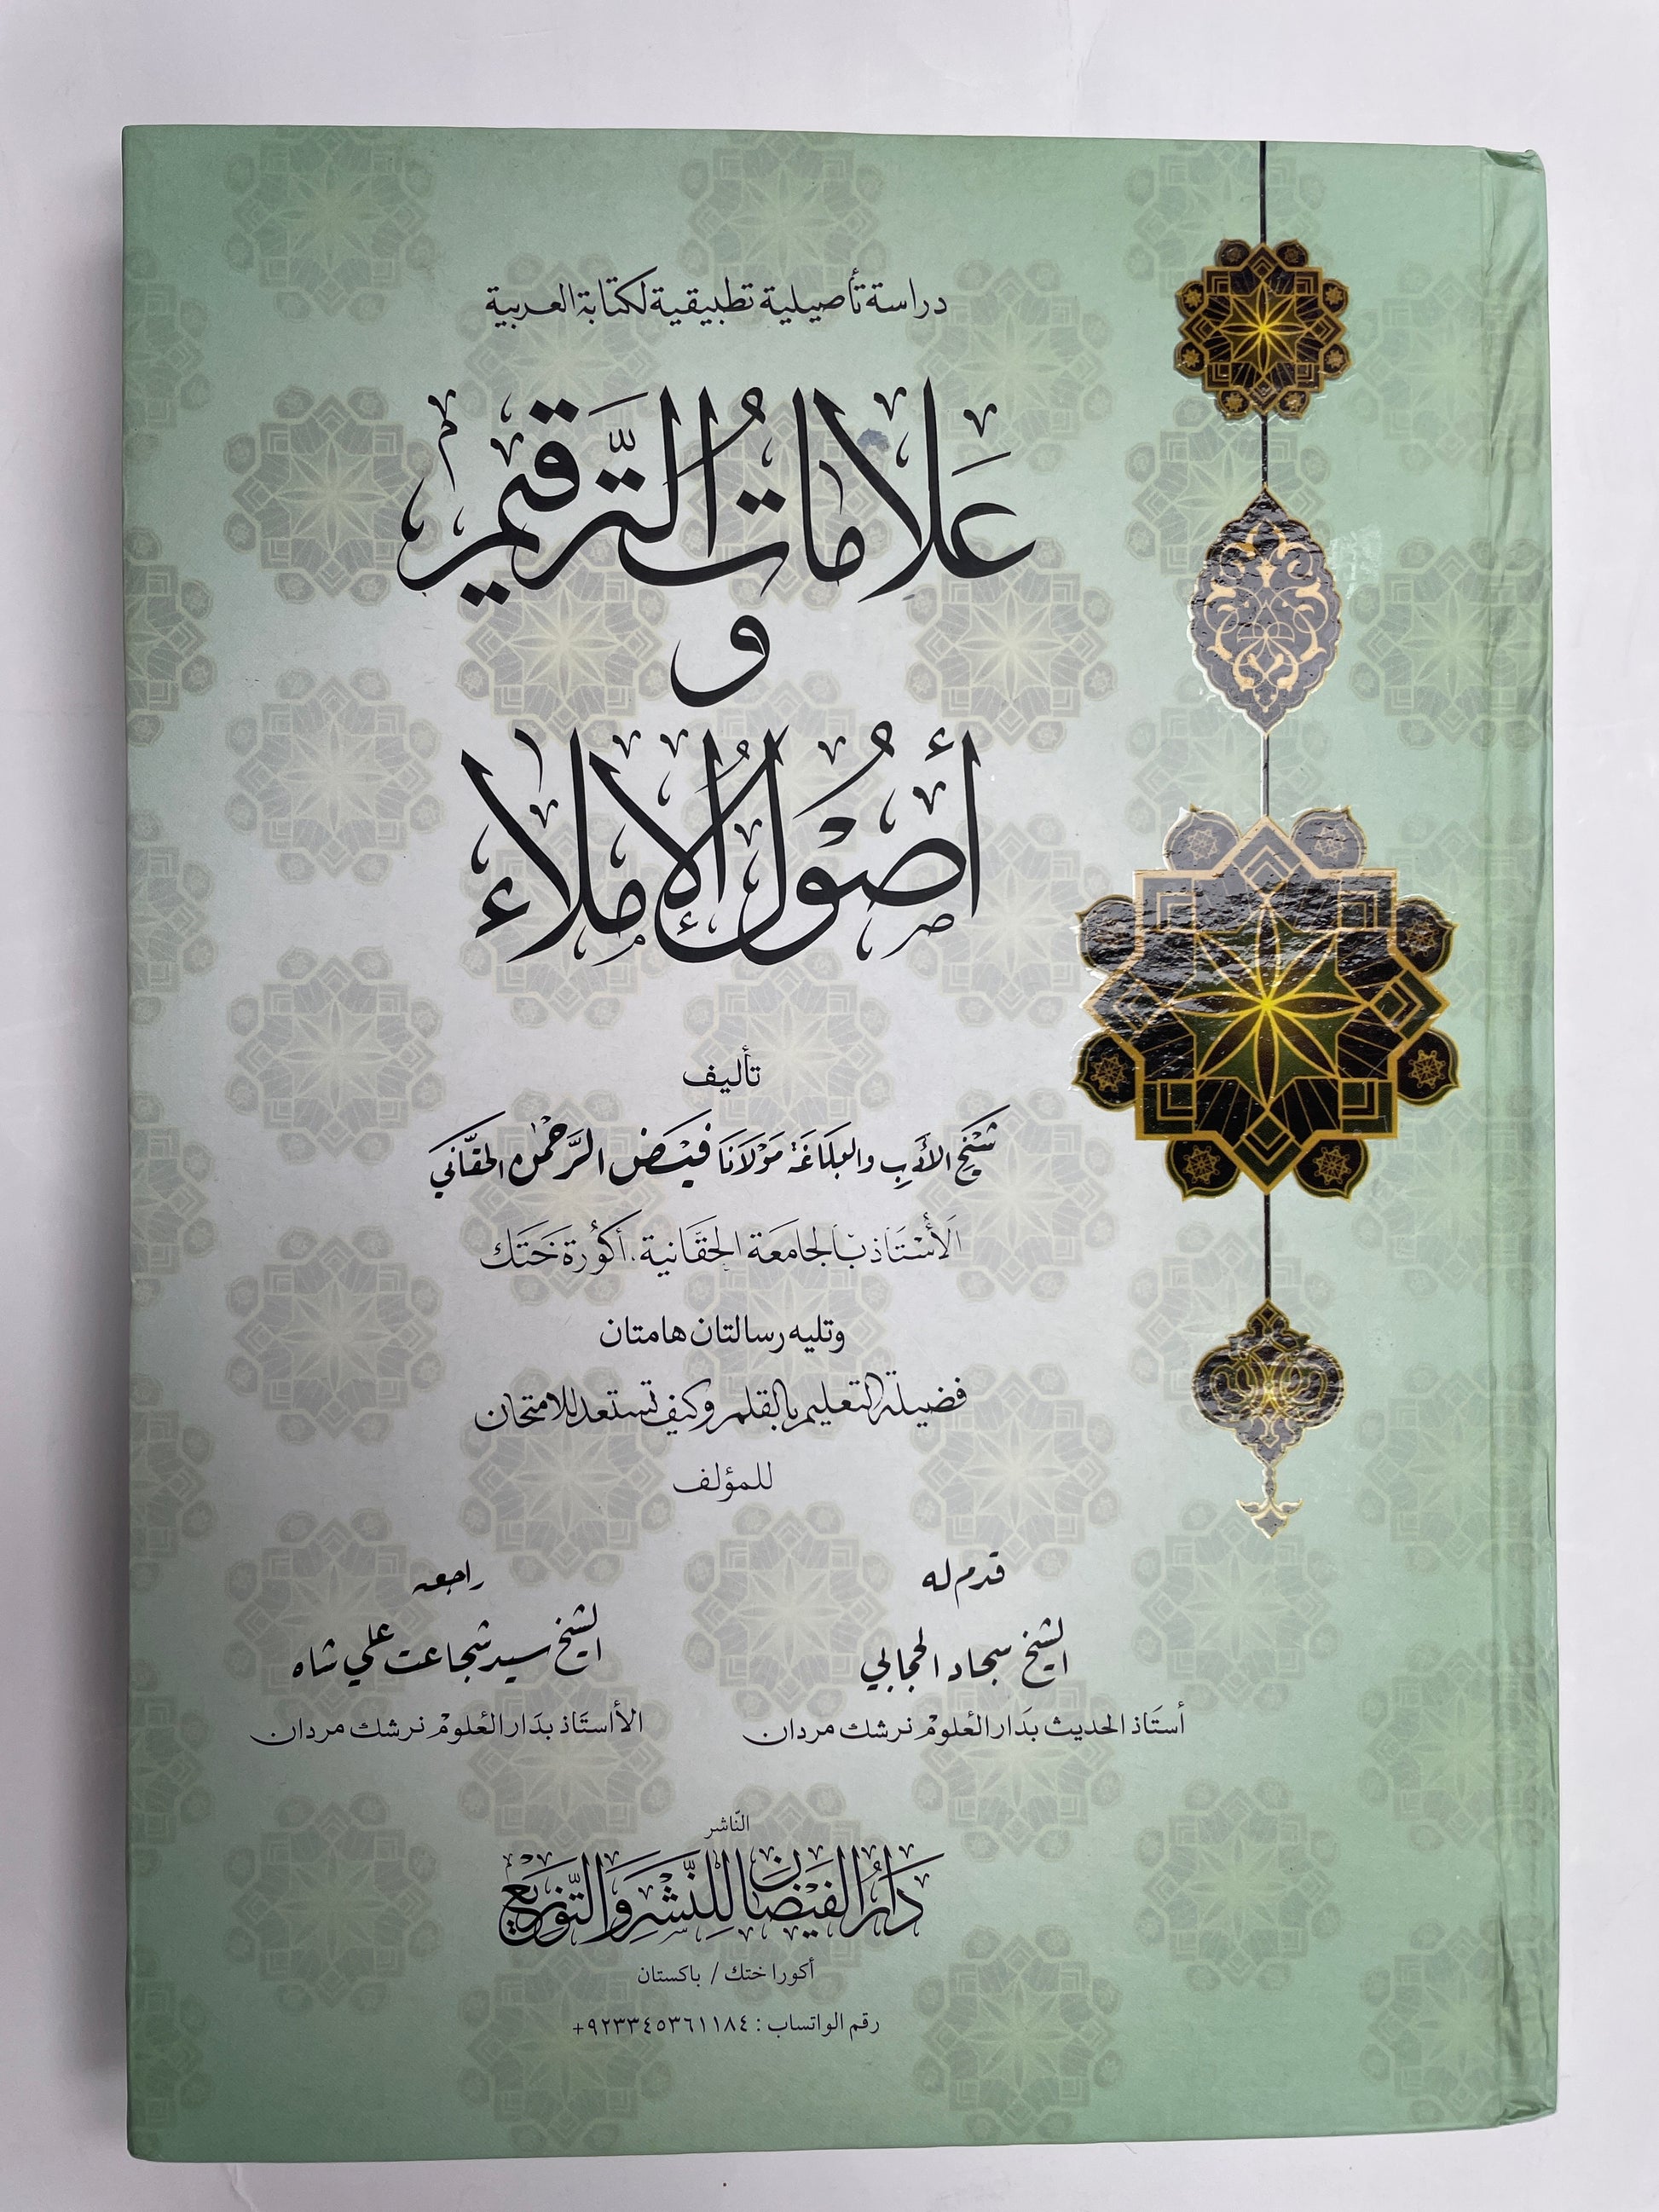 دراسة تأصيلية تطبيقية لكتابة العربية
عَلَامَاتُ التَّرقيم
و
أُصُوْلُ الْإِملاء
تأليف
شَيْخ الأدَبِ والبَلَاغَة مَوْلَانَا فَيْضَ الرَّحْمٰن الحقَّانَي
الَأُسْتَاذ بالجَامعَة الحَقَّانية، أكوُرة خَتَك
وتليه رسالتان هامتان
فضيلة التعليم بالقلم وكيف تستعد للامتحان
للمؤلف
قدم له
الشيخ سجاد الحجابي
أستَاذ الحديث بدَار العُلومْ نرشك مردان
راجعه
الشيخ سيد شجاعت علي شاه
الأاستَاذ بدَار العُلومْ نرشك مردان
النّاشر
دَارُ الفَيْضَان لِلنَّشْرِ وَالتَّوزيَعْ
أكورا ختك / باكستان
رقم الواتساب : ٩٢٣٣٤٥٣٦١١٨٤+